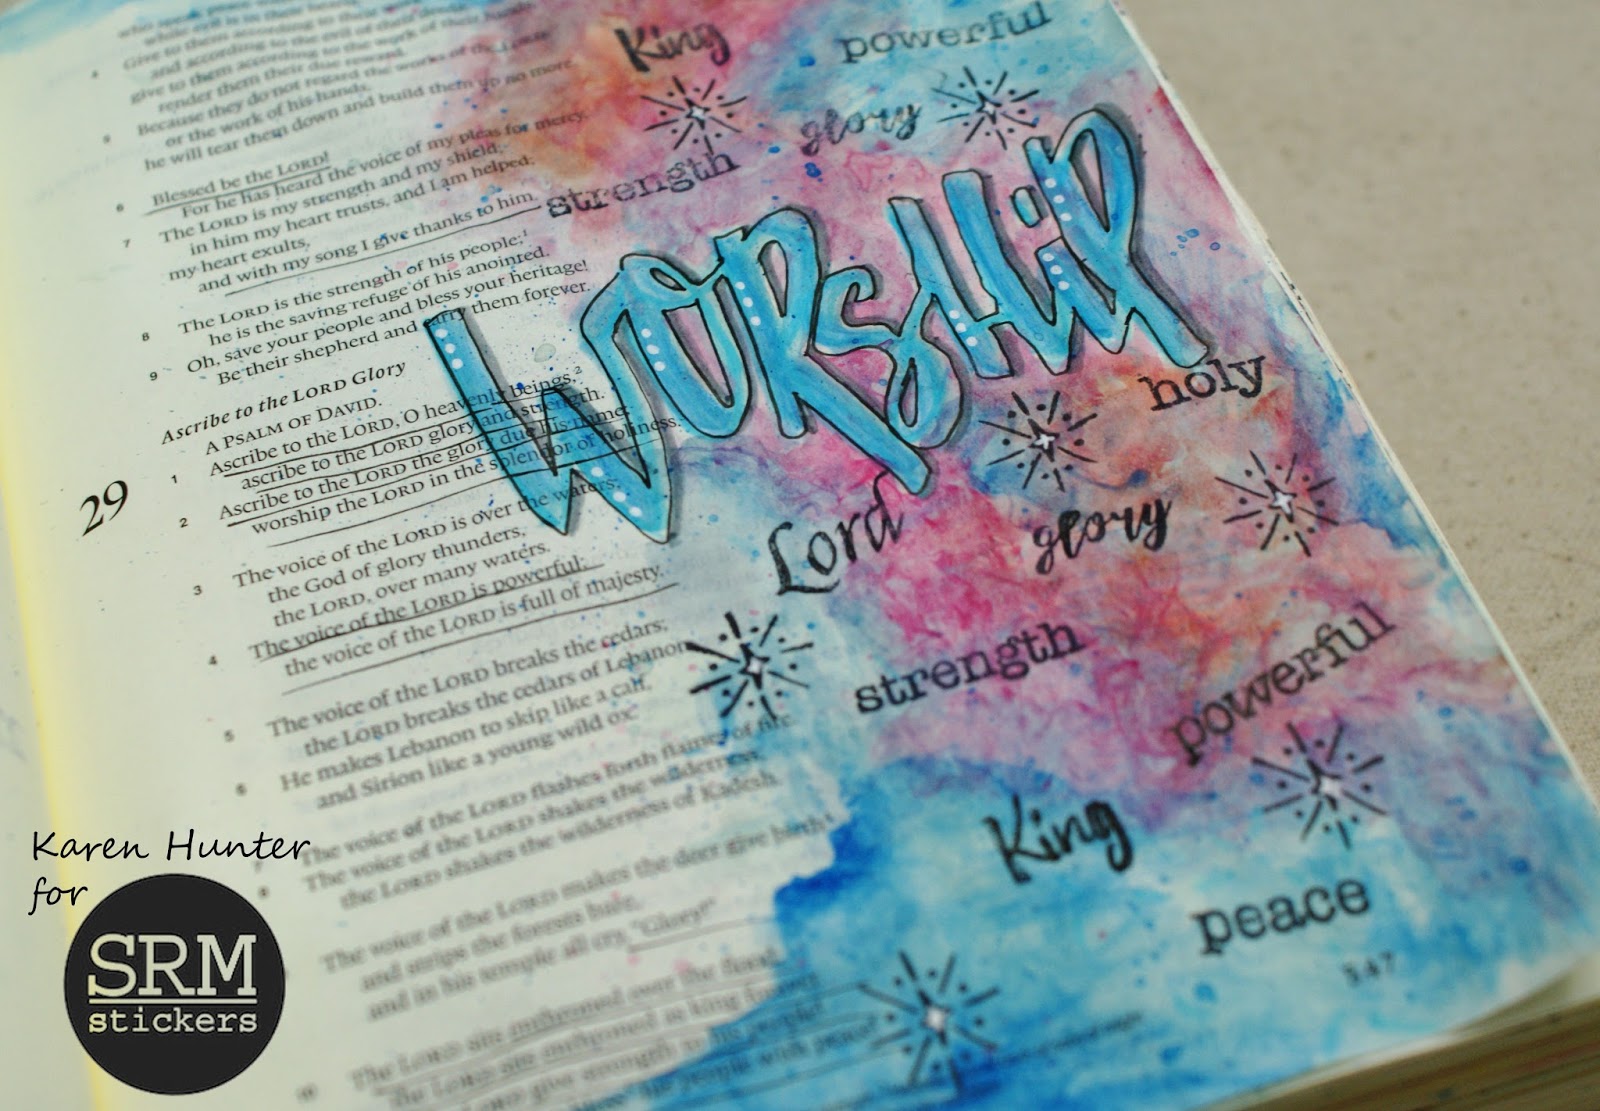 and according to the evil of their deeds;
give to them according to the work of their hands;
render them their due reward.
5 Because they do not regard the works of the LORD
or the work of his hands,
he will tear them down and build them up no more.
6 Blessed be the LORD!
For he has heard the voice of my pleas for mercy.
7 The LORD is my strength and my shield;
in him my heart trusts, and I am helped;
my heart exults,
and with my song I give thanks to him.
8 The LORD is the strength of his people;1
he is the saving refuge of his anointed.
9 Oh, save your people and bless your heritage!
Be their shepherd and carry them forever.
Ascribe to the LORD Glory
A PSALM OF DAVID.
29
1 Ascribe to the LORD, O heavenly beings,2
ascribe to the LORD glory and strength.
2 Ascribe to the LORD the glory due his name;
worship the LORD in the splendor of holiness.
3 The voice of the LORD is over the waters;
the God of glory thunders,
the LORD, over many waters.
4 The voice of the LORD is powerful;
the voice of the LORD is full of majesty.
5 The voice of the LORD breaks the cedars;
the LORD breaks the cedars of Lebanon.
6 He makes Lebanon to skip like a calf,
and Sirion like a young wild ox.
7 The voice of the LORD flashes forth flames of fire.
8 The voice of the LORD shakes the wilderness;
the LORD shakes the wilderness of Kadesh.
The voice of the LORD makes the deer give birth
and strips the forests bare,
and in his temple all cry, "Glory!"
The LORD sits enthroned over the flood;
the LORD sits enthroned as king forever.
King
powerful
glory
strength
WORSHIP
holy
Lord
glory
strength
powerful
King
peace
547
Karen Hunter
for
SRM
stickers